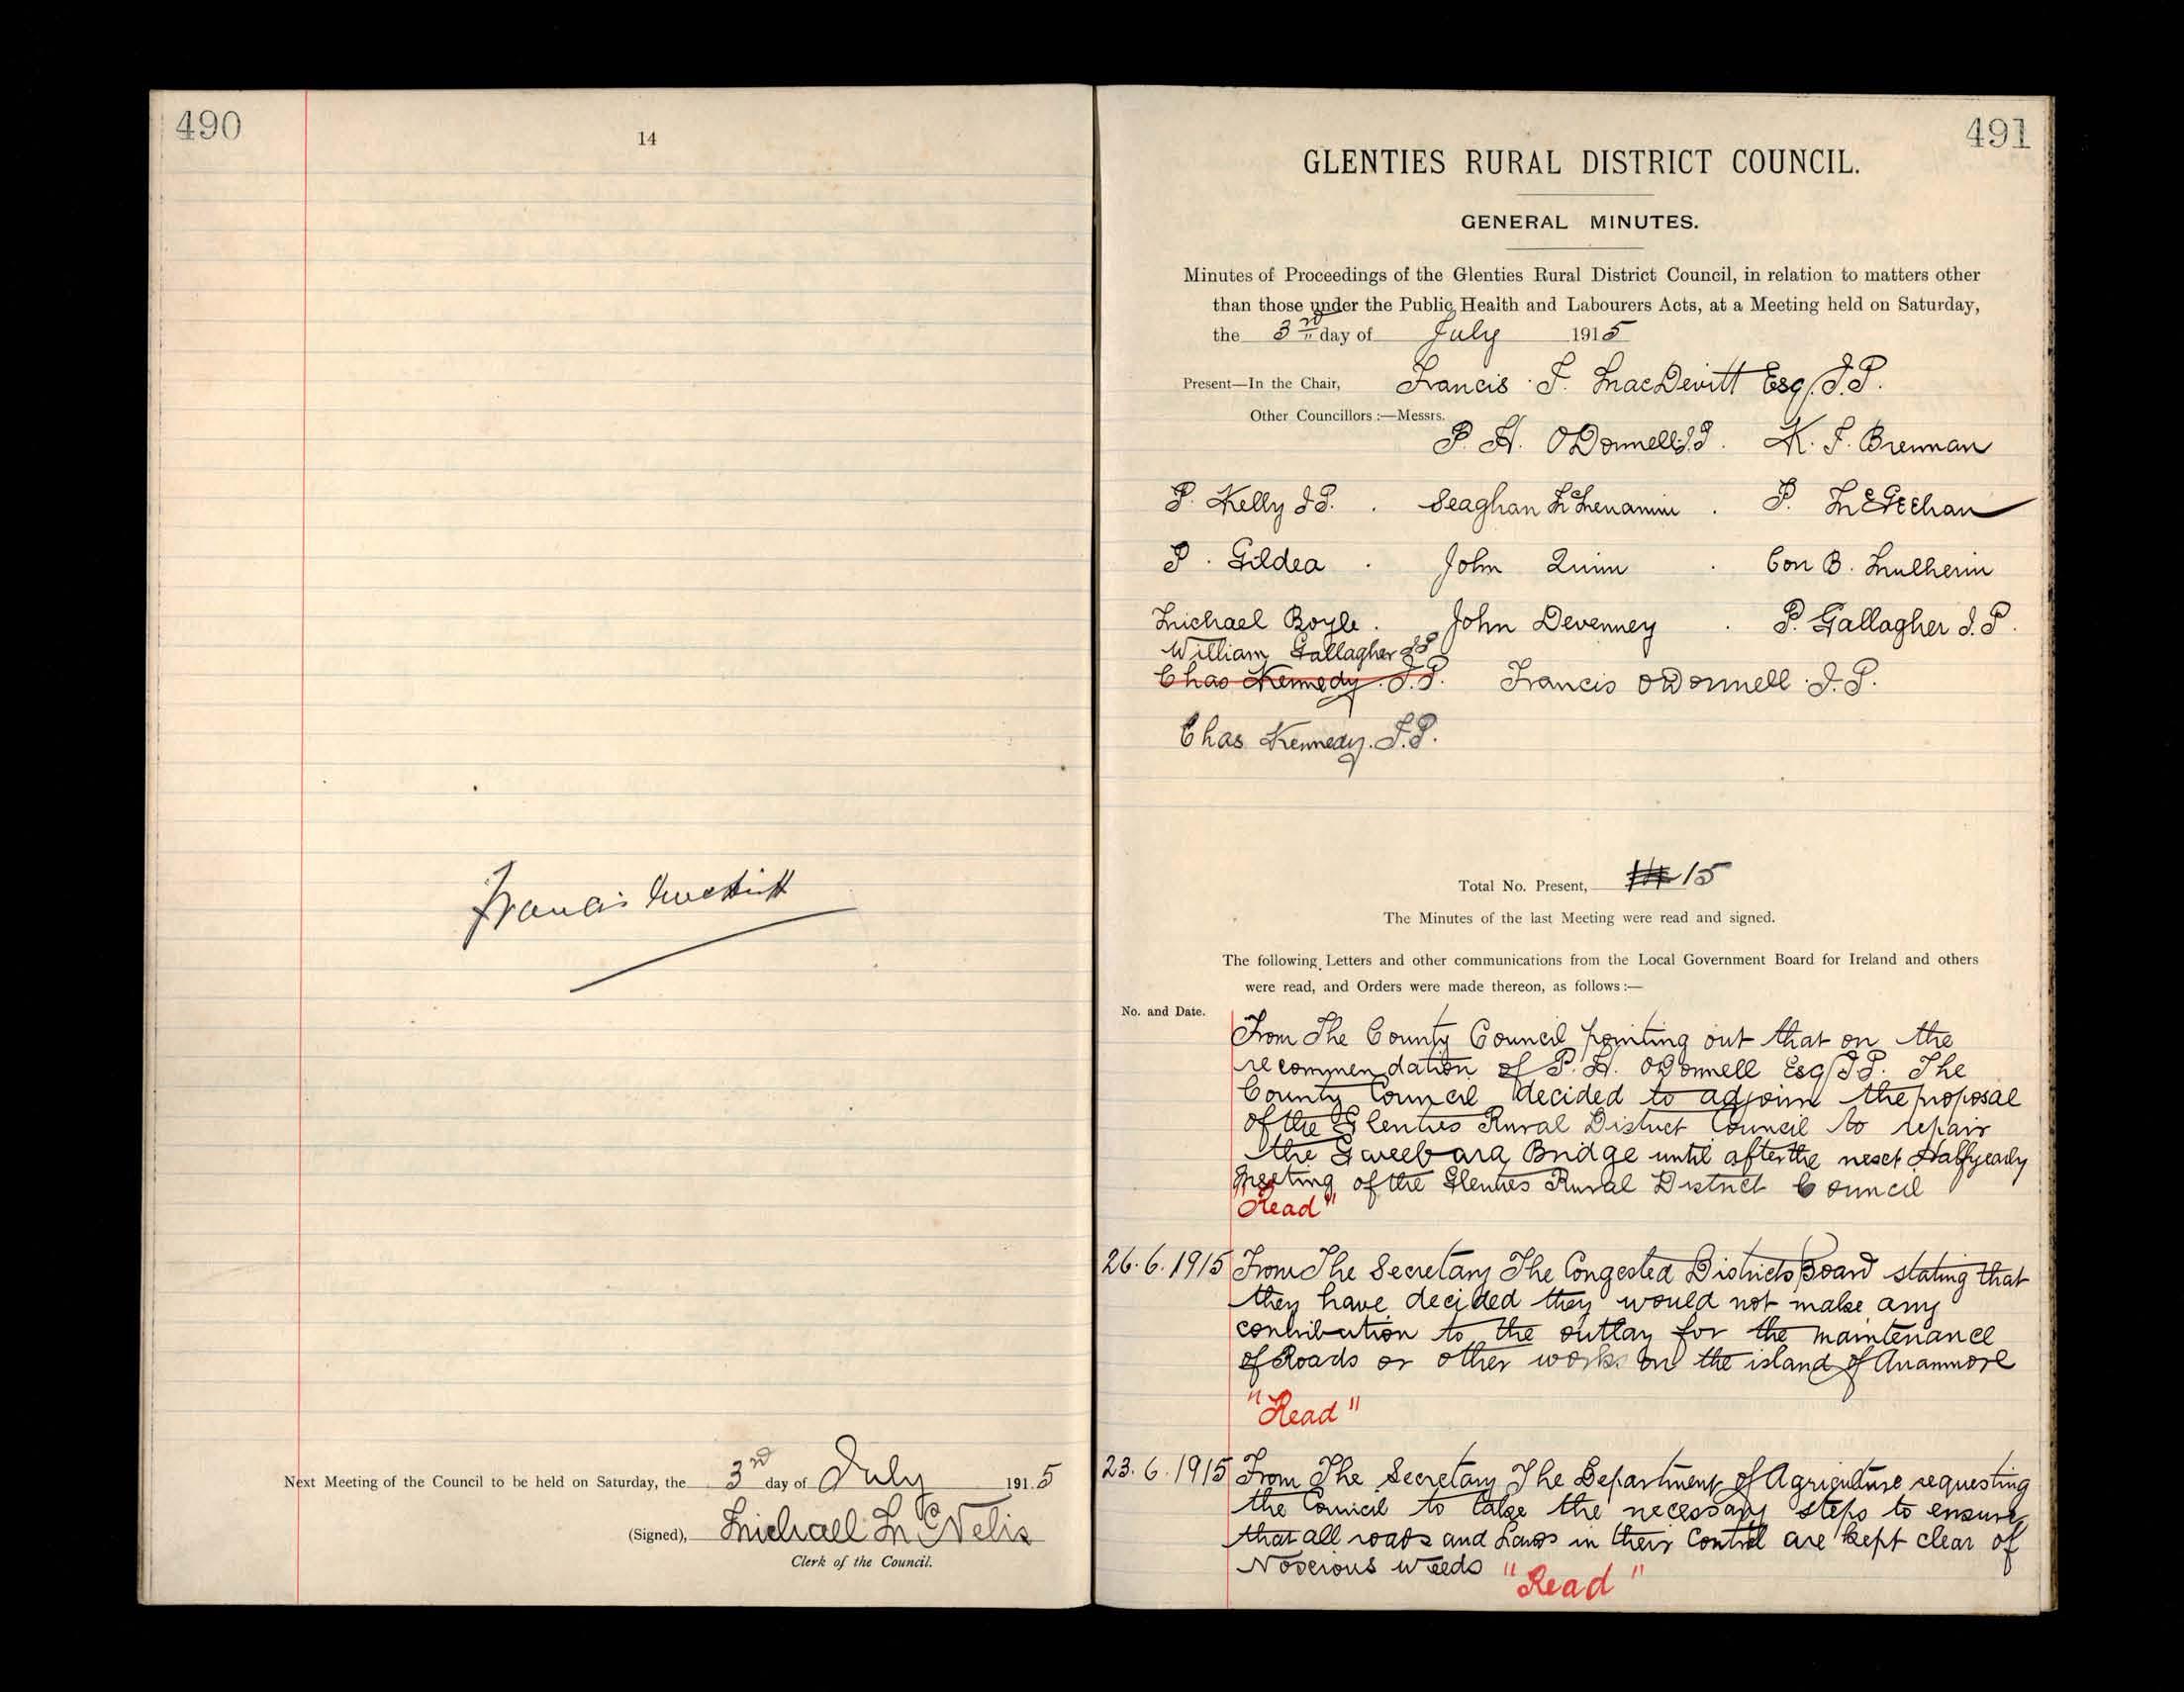 490
14
Francis MacDevitt
Next Meeting of the Council to be held on Saturday, the 3rd day of July 1915
(Signed), Michael McNelis
Clerk of the Council.
491
GLENTIES RURAL DISTRICT COUNCIL.
GENERAL MINUTES.
Minutes of Proceedings of the Glenties Rural District Council, in relation to matters other
than those under the Public Health and Labourers Acts, at a Meeting held on Saturday,
the 3rd day of July 1915
Present—In the Chair, Francis J. MacDevitt Esq J.P.
Other Councillors :—Messrs.
P. H. ODonnell J.P. K. F. Brennan
P. Kelly J.P. . Seaghan . P. McGeehan
P. Gildea . John Quinn . Con B. Mulhern
Michael Boyle . John Devenney . P. Gallagher J.P.
William Gallagher J.P.
Chas Kennedy J.P. Francis ODonnell J.P.
Chas Kennedy. J.P.
Total No. Present, 14 15
The Minutes of the last Meeting were read and signed.
The following Letters and other communications from the Local Government Board for Ireland and others
were read, and Orders were made thereon, as follows :—
No. and Date.
From The County Council pointing out that on the
recommendation of P. H. ODonnell Esq J.P. The
County Council decided to adjourn the proposal
of the Glenties Rural District Council to repair
the Gweebara Bridge until after the next Halfyearly
Meeting of the Glenties Rural District Council
"Read"
26.6.1915 From The Secretary The Congested Districts Board stating that
they have decided they would not make any
contribution to the outlay for the maintenance
of Roads or other works on the island of Aranmore
"Read"
23.6.1915 From The Secretary The Department of Agriculture requesting
the Council to take the necessary steps to ensure
that all roads and Lands in their Control are kept clear of
Noxious weeds "Read"